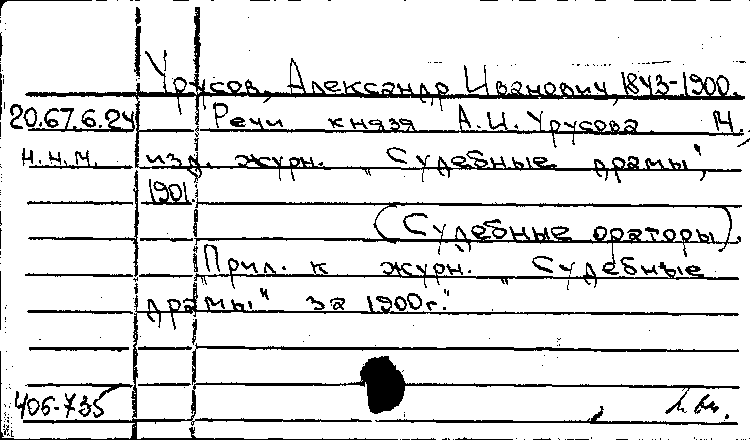 Урусов, Александр Иванович, 1843-1900.
20.67.6.24 Речи князя А.И. Урусова. М.,
н.н.м. изд. журн. „Судебные драмы",
1901.
(Судебные ораторы).
„Прил. к журн. „Судебные
драмы" за 1900г."
406-735